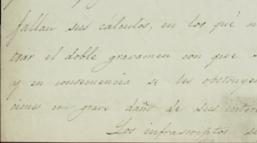 fallan sus calculos, en los qué
trar el doble gravamen con que
y en consecuencia se les obstruye
ciones con grave daño de sus inter
Los infrascriptos se